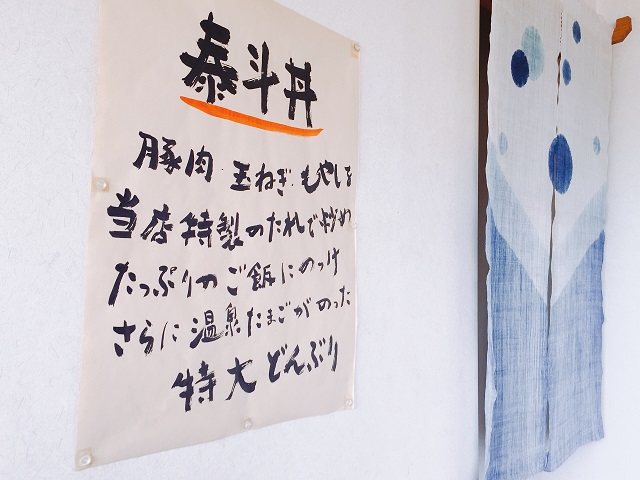 泰斗丼
豚肉・玉ねぎ・もやしを
当店特製のたれで炒め
たっぷりのご飯にのっけ
さらに温泉たまごがのった
特大どんぶり